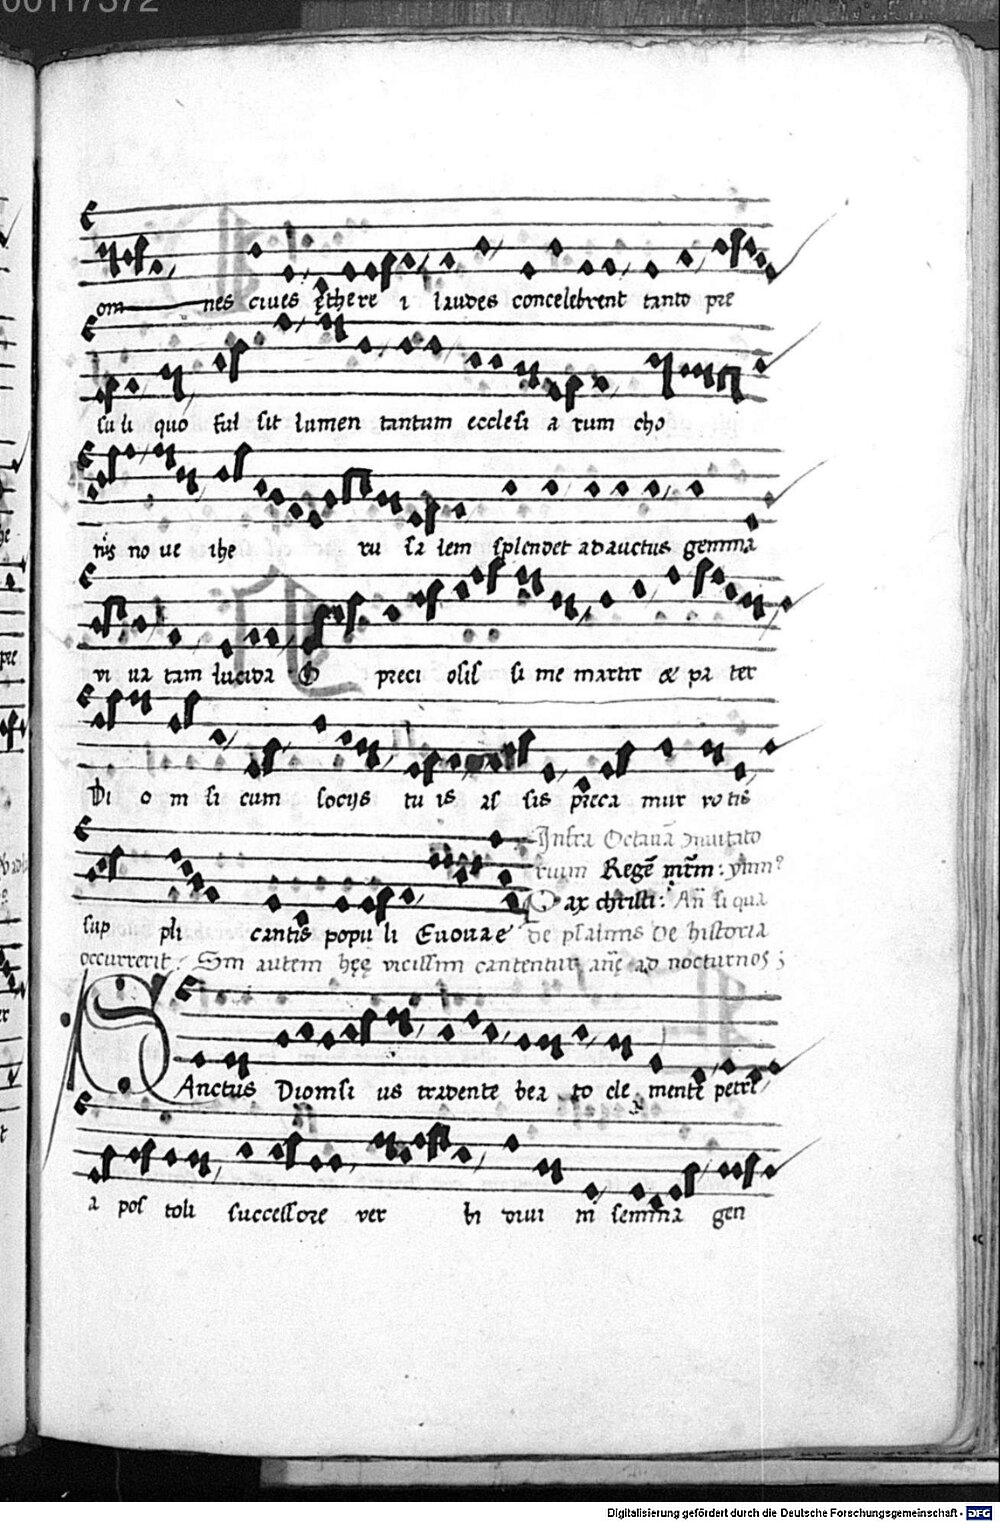 00117372
om nes ciues ęthere i laudes concelebrent tanto pre
suli quo ful sit lumen tantum ecclesi a rum cho
ris no ue ihe ru sa lem splendet adauctus gemma
vi ua tam lucida O preci osis si me martir & pa ter
Di o ni si cum socijs tu is as sis preca mur vo tis
Infra Octauā Inuitato
rium Regē mrm̄: ymn9
sup pli cantis popu li Euouae Pax christi: Añ si qua
de psalmis de historia
occurrerit. Sin autem hęc vicissim cantentur añę ad nocturnos
SAnctus Dionisi us tradente bea to cle mente petri
a pos toli successore ver bi diui ni semina gen
Digitalisierung gefördert durch die Deutsche Forschungsgemeinschaft - DFG